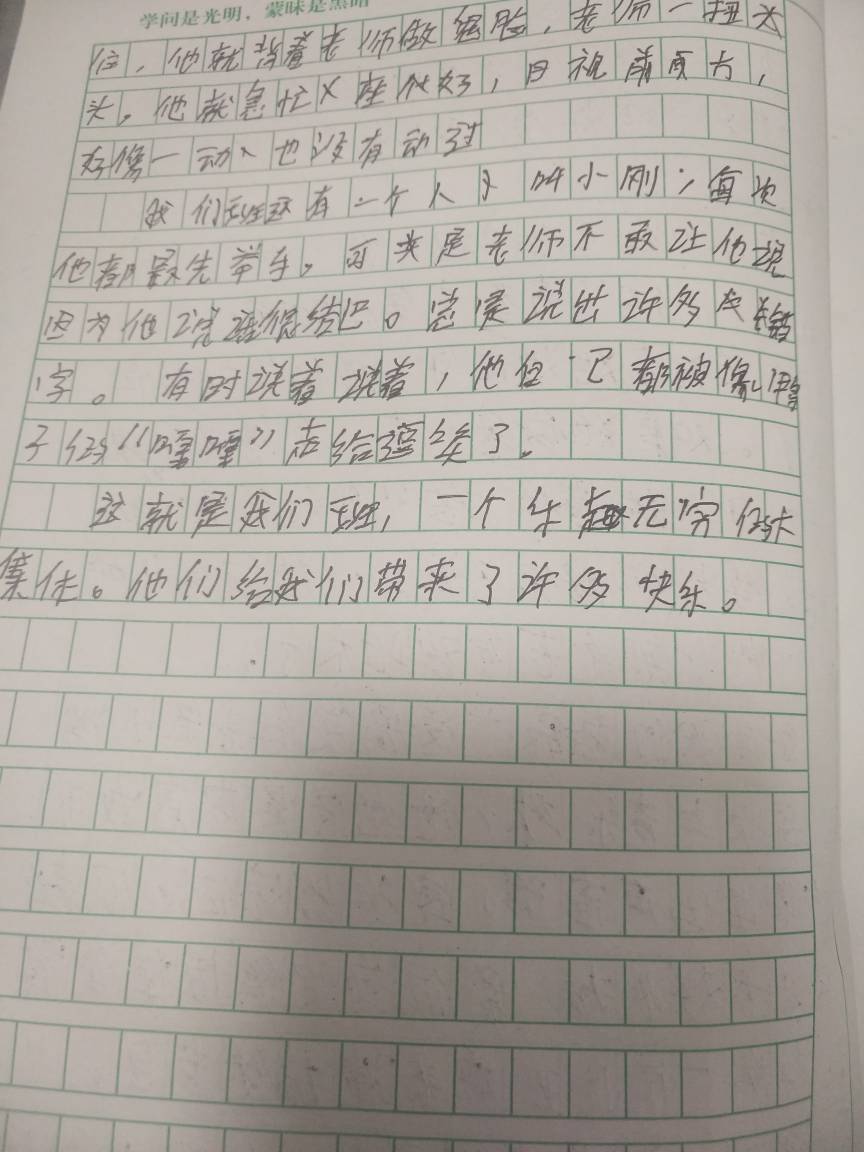 学问是光明，蒙昧是黑暗
位，他就背着老师做鬼脸，老师一扭头
头，他就急忙又座似好，目视前页方，
好像一动、也没有动过
我们班还有一个人才叫小刚；每次
他都最先举手。可关是老师不敢让他说
因为他说话很结巴。总是说出许多错
字。有时说着说着，他自己都被像鸭
子似"嘎嘎"声给逗笑了。
这就是我们班，一个乐趣无穷
集体。他们给我们带来了许多快乐。